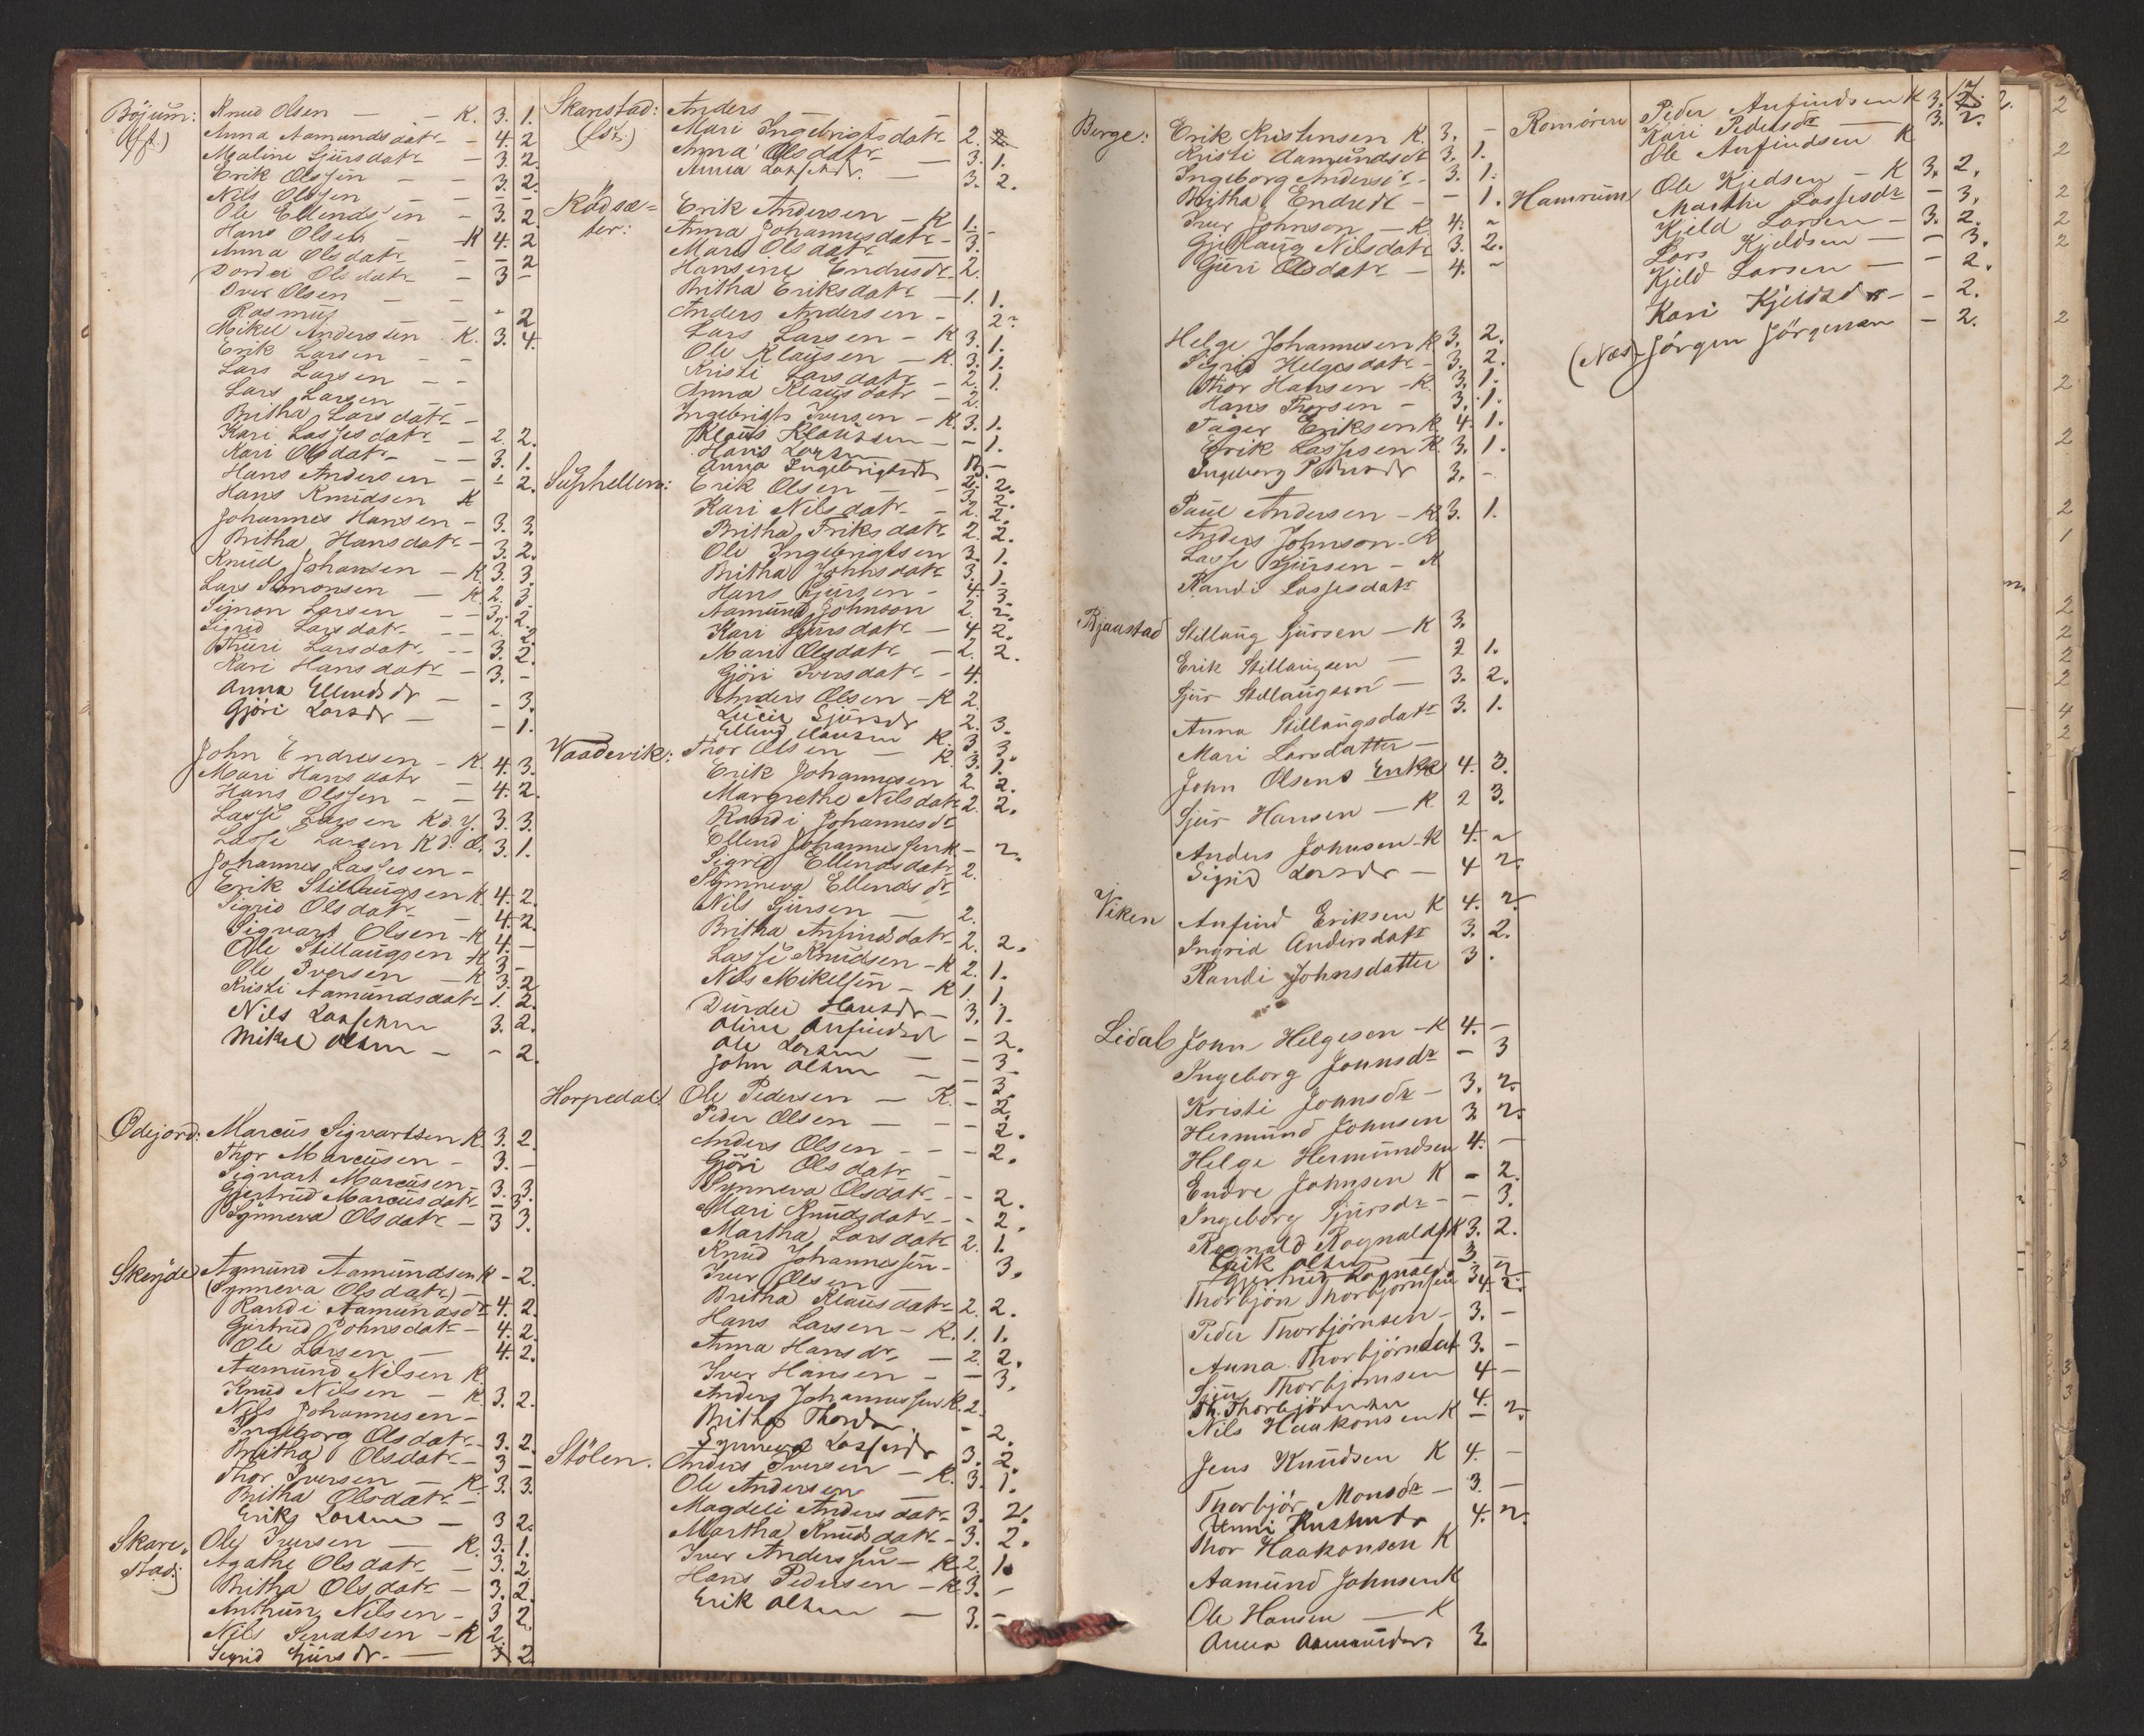 Böjum: Knud Olsen — — K. 3. 1.
(f. ft.) Anna Aamundsdatr - 4. 2
Maline Sjursdatr - 3. 2.
Erik Olssen - - 3. 2.
Nils Olssen - - - -
Ole Ellendsen - 3. 2.
Hans Olsen - K 4. 2
Anna Olsdatr - - 2
Dordei Olsdatr - 3 -
Iver Olsen - -
Rasmus - - 2
Mikel Anderssen K. 3. 4.
Erik Larsen - -
Lars Larsen - -
Lars Larsen - -
Britha Larsdatr -
Kari Lassesdatr - 2. 2.
Kari Olsdatr - - 3. 1.
Hans Andersen - - 2.
Hans Knudsen K
Johannes Hansen - 3. 3.
Britha Hansdatr - 3. 2.
Knud Johansen - K. 3. 3.
Lars Simonsen - K. 2. 3
Simon Larsen - - 3. 2.
Sigrid Larsdatr - - 2. 2
Thuri Larsdatr - - 3. 2.
Kari Hansdatr - 3. -
Anna Ellendsdr - - 3.
Gjöri Larsdr - - 1.
John Endresen - K. 4. 3.
Mari Hansdatr - 4. 2.
Hans Olssen - -
Lasse Larsen K d. y. 3. 3.
Lasse Larsen K d. æ. 3. 1.
Johannes Lassesen -
Erik Stillaugsen K. 4. 2.
Sigrid Olsdatr - 4. 2.
Sigvart Olsen - K 4. -
Ole Stillaugsen - K 3 -
Ole Iversen - K 3. 2
Kristi Aamundsdatr - 1. 2.
Nils Larssen 3. 2.
Mikel Olsen - - 2.
Ödejord: Marcus Sigvartsen K. 3. 2.
Thor Marcusen - 3. -
Sigvart Marcusen - 3. 3.
Gjertrud Marcusdatr - 3.
Synneva Olsdatr - 3 3.
Skeide Aamund Aamundsen K - 2.
(Synneva Olsdatr) -
Randi Aamundsdr 4. 2.
Gjertrud Johnsdatr - 4. 2.
Ole Larsen - 4. 2.
Aamund Nilsen K
Knud Nilsen - K. 3. 2.
Nils Johannesen -
Ingeborg Olsdatr - 3. 2.
Britha Olsdatr - 3 -
Thor Iversen - K. 3. 3.
Britha Olsdatr -
Erik Larsen - 3 2.
Skare- Ole Iversen - K. 3. 1.
stad: Agathe Olsdatr - 3. 2
Britha Olsdatr - 3. 2.
Anthun Nilsen - 3 2.
Nils Sivatsen - K 2.
Sigrid Sjursdr. - 3 2
Skarestad: Anders — —
Mari Ingebrigtsdatr - 2. 2.
Anna Olsdatr - 3. 1.
Anna Larssendr. - 3. 2.
Rödsæ- Erik Andersen - K 1. -
ter: Anna Johannesdatr - 3.
Mari Olsdatr
Hansine Endresdr - 2.
Britha Eriksdatr - 1. 1.
Anders Andersen - 2.
Lars Larsen - K 3. 1.
Ole Klausen - K. 3. 1.
Kristi Larsdatr - 2. 1.
Anna Klausdatr - 2.
Ingebrigt Iversen - K. 3. 1.
Klaus Klaussen - - 1.
Hans Larsen
Anna Ingebrigtsdr
Suphellen: Erik Olsen - - 3. 2.
Kari Nilsdatr - 2. 2.
Britha Eriksdatr 2. 2.
Ole Ingebrigtsen 3. 1.
Britha Johnsdatr 3. 1.
Hans Sjursen - 4. 3.
Aamund Johnson 2. 2.
Kari Sjursdatr - 4. 2.
Mari Olsdatr - 2. 2.
Gjöri Iversdatr - 4.
Anders Olsen - K 2.
Lucie Sjursdr 2. 3.
Ellend Hansen K. 3. 3.
Vaadevik: Thor Olsen - K. 3. 1.
Erik Johannesen 2. 2.
Margrethe Nilsdatr 2. 2.
Randi Johannesdr
Ellend Johannessen K - 2.
Sigrid Ellendsdatr 2.
Synneva Ellendsdr
Nils Sjursen - 2.
Britha Anfindsdatr - 2. 2.
Lasse Knudsen - K 2. 1.
Nils Mikelsen - K 1. 1.
Durdei Hansdr - 3. 1.
Oline Anfindsd - 2.
Ole Larsen - - 3
John Olsen - - 3.
Horpedal: Ole Pedersen - K. - 2.
Peder Olsen - - - 2.
Anders Olsen - - - 2.
Göri Olsdatr -
Synneva Olsdatr - - 2.
Mari Knudsdatr - - 2.
Martha Larsdatr 2. 1.
Knud Johannessen - 3.
Iver Olsen -
Britha Klausdatr - 2. 2.
Hans Larsen - K. 1. 1.
Anna Hansdr. - 2. 2.
Iver Hansen - - 3.
Anders Johannessen K. 2.
Britha Thorsdr. - 2.
Synneva Lassesdr 3. 2.
Stölen. Anders Iversen - K. 3. 1.
Ole Andersen
Magdeli Andersdatr - 3. 2.
Martha Knudsdatr - 3. 2.
Iver Anderssen - K. 2. 1.
Hans Pedersen - K. 3. -
Erik Olsen - 3. -
Berge: Erik Kristensen K. 3. -
Kristi Aamundsdr 3. 1.
Ingeborg Andersdr - 3. 1.
Britha Endredr - - 1.
Iver Johnson - K. 4. -
Gjertaug Nilsdatr 3. 2.
Guri Olsdatr - 4. -
Helge Johannesen K 3. 2.
Sigrid Helgesdatr - 3. 2.
Thor Hansen - K. 3. 1.
Hans Thorsen - 3. 1.
Tager Eriksen K. 4. 1.
Erik Lassesen K. 3. 1.
Ingeborg Pedersdr 3. -
Paul Andersen - K 3. 1.
Anders Johnson - K
Lasse Sjursen - K
Randi Lassesdatr
Bjaastad Stillaug Sjursen - K 3.
Erik Stillaugsen - 2 1.
Sjur Stillaugsen - 3. 2.
Anna Stillaugsdatr 3. 1.
Mari Larsdatter -
John Olsens Enke 4. 3.
Sjur Hansen - K. 2 3.
Anders Johnsen - K 4. -
Sigrid Larsdr - 4 2.
Viken Anfind Eriksen K 4. 2.
Ingrid Andersdatr 3. 2.
Randi Johnsdatter 3.
Lidal John Helgesen - K 4. -
Ingeborg Johnsdr - 3
Kristi Johnsdr - 3. 2.
Hermund Johnsen 3 2.
Helge Hermundsen 4. -
Endre Johnsen K - 2.
Ingeborg Sjursdr - - 3.
Rognald Rognalds. K 3. 2.
Erik Olsen 3
Gjertrud Rognaldsd.
Thorbjön Thorbjörnsen 4. 2.
Peder Thorbjörnsen - 3. -
Anna Thorbjörnsdat 3. -
Sjur Thorbjörnsen 4 -
Th. Thorbjörnsen 4.
Nils Haakonsen K - 2.
Jens Knudsen K 4. -
Thorbjör Monsdr - 3 -
Unni Kristensdr 4. 2.
Thor Haakonsen K
Aamund Johnsen K
Ole Hansen - K
Anna Aamundsdr. 3.
Romören Peder Anfindsen K 3. 2. 2.
Kari Pedersdr - 3. 2.
Ole Anfindsen K
Hamrum Ole Kjeldsen - K 3. 2.
Marthe Lassesdr - 3.
Kjeld Larsen - 3. 2.
Lars Kjeldsen - - 3.
Kjeld Larsen - - 2.
Kari Kjeldsdr - - 2.
(Næs) Jörgen Jörgensen - 2.